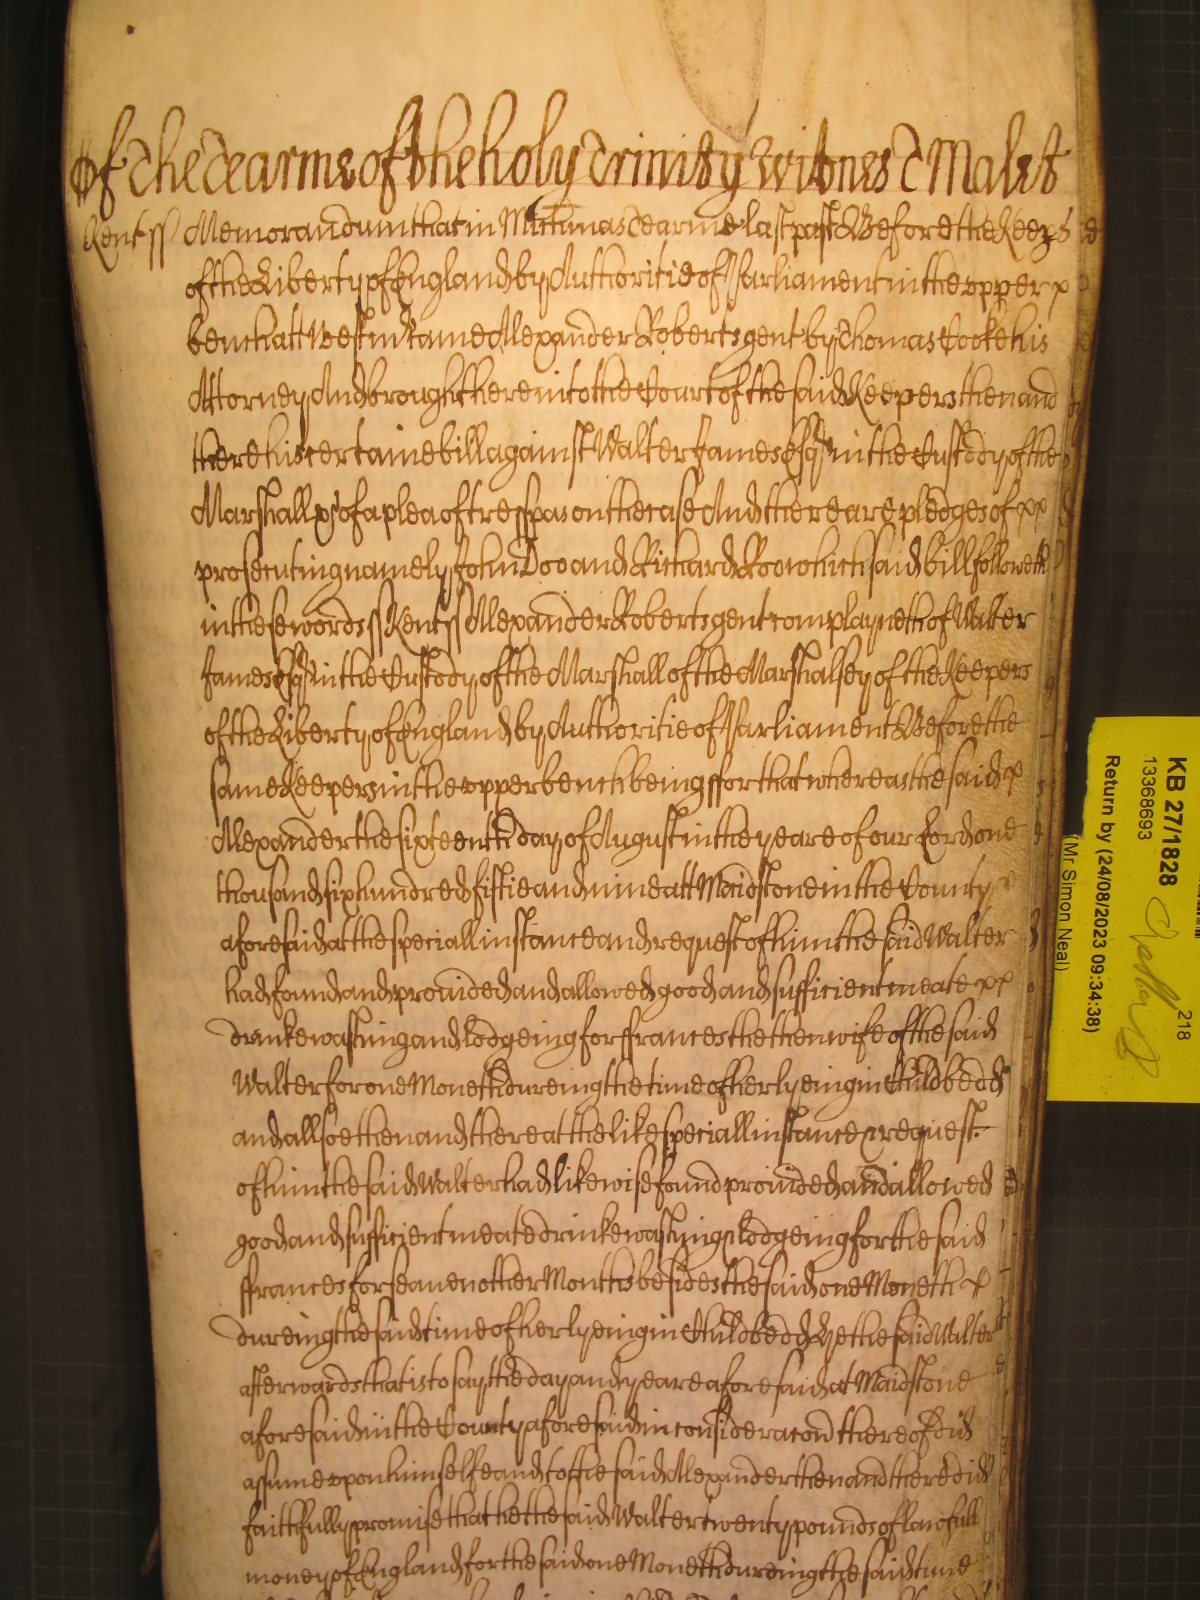 Of the Tearme of the holy Trinity Witnes T Malet
Kent ss Memorandum that in Mich'mas Tearme last past Before the Keep's
of the Liberty of England by Authoritie of Parliament in the vpper x
bench att Westm' Came Alexander Roberts gent by Thomas Cooke his
Attorney And brought here into the Court of the said Keepers then and
there his certaine bill against Walter James Esq' in the Custody of the
Marshall &c of a plea of trespas on the case And there are pledges of xx
prosecuting namely John Doo and Richard Roo which said bill followeth
in these words ss Kent ss Alexander Roberts gent complayneth of Walter
James Esq' in the Custody of the Marshall of the Marshalsey of the Keepers
of the Liberty of England by Authoritie of Parliament Before the
same Keepers in the vpper bench being ffor that whereas the said x
Alexander the sixteenth day of August in the yeare of our Lord one
thousand six hundred fiftie and nine att Maidstone in the County x
aforesaid at the speciall instance and request of him the said Walter
had found and provided and allowed good and sufficient meate xx
drinke washing and lodgeing for ffrances the then wife of the said
Walter for one Moneth dureing the time of her lyeing in Childbedd
and allsoe then and there at the like speciall instance & request
of him the said Walter had likewise found provided and allowed
good and sufficient meate drinke washing & lodgeing for the said
ffrances for seaven other Months besides the said one Moneth x
dureing the said time of her lyeing in Childbedd He the said Walter
afterwards that is to say the day and yeare aforesaid at Maidstone
aforesaid in the County aforesaid in consideracon thereof did
assume vpon himselfe and to the said Alexander then and there did
faithfully promise that he the said Walter twenty pounds of lawfull
money of England for the said one Moneth dureing the said time
KB 27/1828
13368693
218
Return by (24/08/2023 09:34:38)
(Mr Simon Neal)